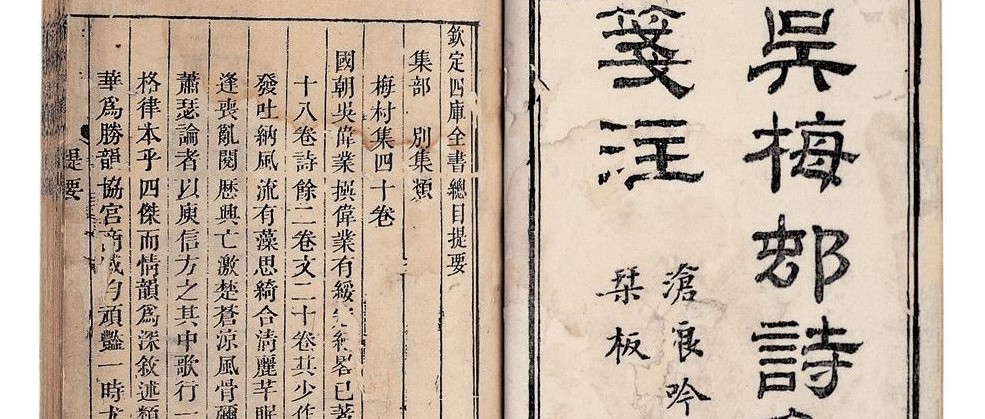 吳梅邨詩
箋注
滄浪吟
栞板
欽定四庫全書總目提要
集部 別集類
梅村集四十卷
國朝吳偉業撰偉業有綏寇紀畧已著
十八卷詩餘二卷文二十卷其少作
發吐納風流有藻思綺合清麗芊眠
逢喪亂閱歷興亡激楚蒼涼風骨彌
蕭瑟論者以庾信方之其中歌行一
格律本乎四傑而情韻爲深敘述類
華爲勝韻協宮商感均頑豔一時尤
提要